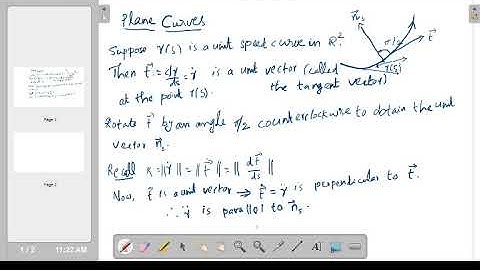 Plane Curves
Suppose γ(s) is a unit speed curve in ℝ².
Then t⃗ = dγ/ds = γ̇ is a unit vector (called the tangent vector)
at the point γ(s).
n⃗ₛ
π/2
t⃗
γ(s)
Rotate t⃗ by an angle π/2 counterclockwise to obtain the unit
vector n⃗ₛ.
Recall κ = ||γ̈|| = ||t⃗̇|| = || dt⃗/ds ||
Now, t⃗ is a unit vector ⇒ t⃗̇ = γ̈ is perpendicular to t⃗.
∴ γ̈ is parallel to n⃗ₛ.
Page 1
Page 2
1 / 2 11:22 AM